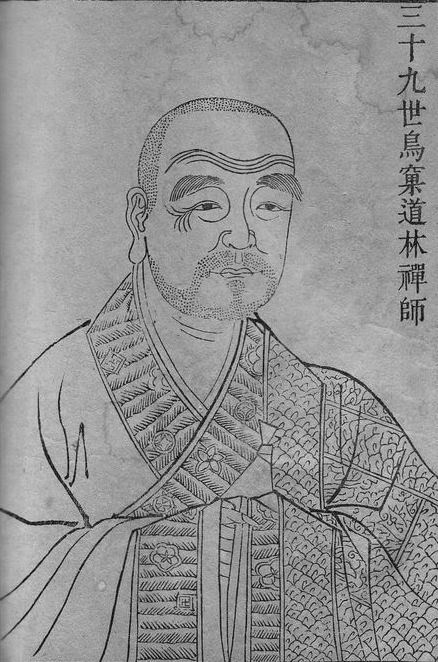 三十九世鳥窠道林禪師